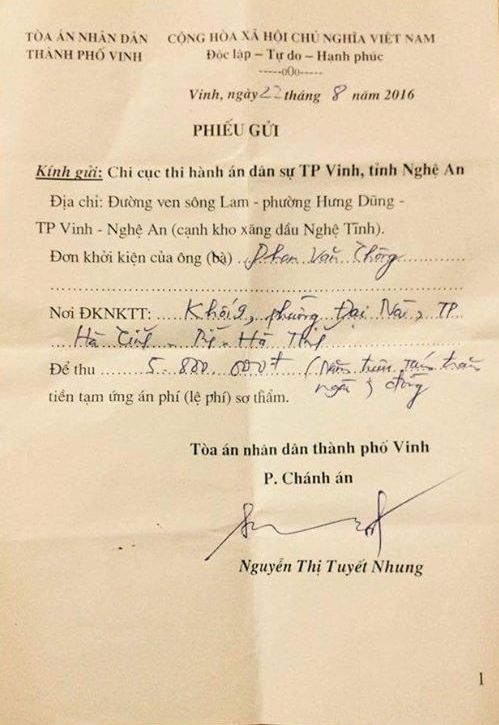 TÒA ÁN NHÂN DÂN CỘNG HÒA XÃ HỘI CHỦ NGHĨA VIỆT NAM
THÀNH PHỐ VINH Độc lập – Tự do – Hạnh phúc
-----o0o-----
Vinh, ngày 22 tháng 8 năm 2016
PHIẾU GỬI
Kính gửi: Chi cục thi hành án dân sự TP Vinh, tỉnh Nghệ An
Địa chỉ: Đường ven sông Lam - phường Hưng Dũng -
TP Vinh - Nghệ An (cạnh kho xăng dầu Nghệ Tĩnh).
Đơn khởi kiện của ông (bà) Phan Văn Thông
Nơi ĐKNKTT: Khối 9, phường Đại Nài, TP
Hà Tĩnh - Hà Tĩnh
Để thu 5.800.000đ (Năm triệu tám trăm
ngàn đồng
tiền tạm ứng án phí (lệ phí) sơ thẩm.
Tòa án nhân dân thành phố Vinh
P. Chánh án
Nguyễn Thị Tuyết Nhung
1